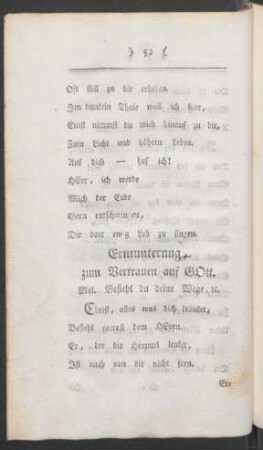 ) 52 (
Oft still zu dir erheben.
Im dunkeln Thale wall ich hier,
Einst nimmst du mich hinauf zu dir,
Zum Licht und höhern Leben.
Auf dich — hof ich!
HErr, ich werde
Mich der Erde
Gern entschwingen,
Dir dort ewig Lob zu singen.
Ermunterung,
zum Vertrauen auf GOtt.
Mel. Befiehl du deine Wege, ec.
Christ, alles was dich kränket,
Befiehl getrost dem HErrn.
Er, der die Himmel lenket,
Ist auch von dir nicht fern.
Er